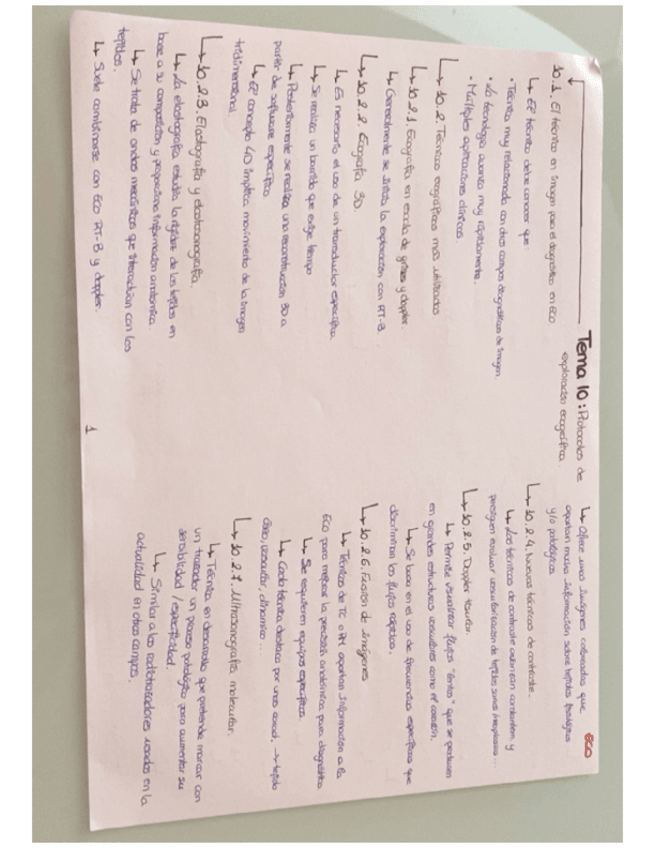 ECO
Tema 10: Protocolos de
exploración ecográfica.
10.1. El técnico en imagen para el diagnóstico en ECO
↳ El técnico debe conocer que:
• Técnica muy relacionada con otros campos diagnósticos de imagen.
• La tecnología avanza muy rápidamente.
• Múltiples aplicaciones clínicas.
↳ 10.2. Técnicas ecográficas más utilizadas
↳ 10.2.1. Ecografía en escala de grises y doppler.
↳ Generalmente se inicia la exploración con RT-B.
↳ 10.2.2. Ecografía 3D.
↳ Es necesario el uso de un transductor específico.
↳ Se realiza un barrido que exige tiempo
↳ Posteriormente se realiza una reconstrucción 3D a
partir de software específico
↳ El concepto 4D implica movimiento de la imagen
tridimensional
↳ 10.2.3. Elastografía y elastosonografía.
↳ La elastografía estudia la rigidez de los tejidos en
base a su composición y proporciona información anatómica.
↳ Se trata de ondas mecánicas que interactúan con los
tejidos.
↳ Suele combinarse con ECO RT-B y doppler.
1
↳ Ofrece unas imágenes coloreadas que
aportan mucha información sobre tejidos fisiológicos
y/o patológicos
↳ 10.2.4. Nuevas técnicas de contraste.
↳ Las técnicas de contraste avanzan constantem. y
persiguen evaluar vascularización de tejidos sanos
↳ 10.2.5. Doppler tisular.
↳ Permite visualizar flujos "lentos" que se producen
en grandes estructuras vasculares como el corazón.
↳ Se basa en el uso de frecuencias específicas que
discriminan los flujos rápidos.
↳ 10.2.6. Fusión de imágenes
↳ Técnicas de TC o RM aportan información a la
ECO para mejorar la precisión anatómica para diagnóstico
↳ Se requieren equipos específicos.
↳ Cada técnica destaca por unas caract. → tejido
óseo, vascular, dinámico...
↳ 10.2.7. Ultrasonografía molecular.
↳ Técnica en desarrollo que pretende marcar con
un trazador un proceso patológico para aumentar su
sensibilidad / especificidad.
↳ Similar a los radiotrazadores usados en la
actualidad en otros campos.